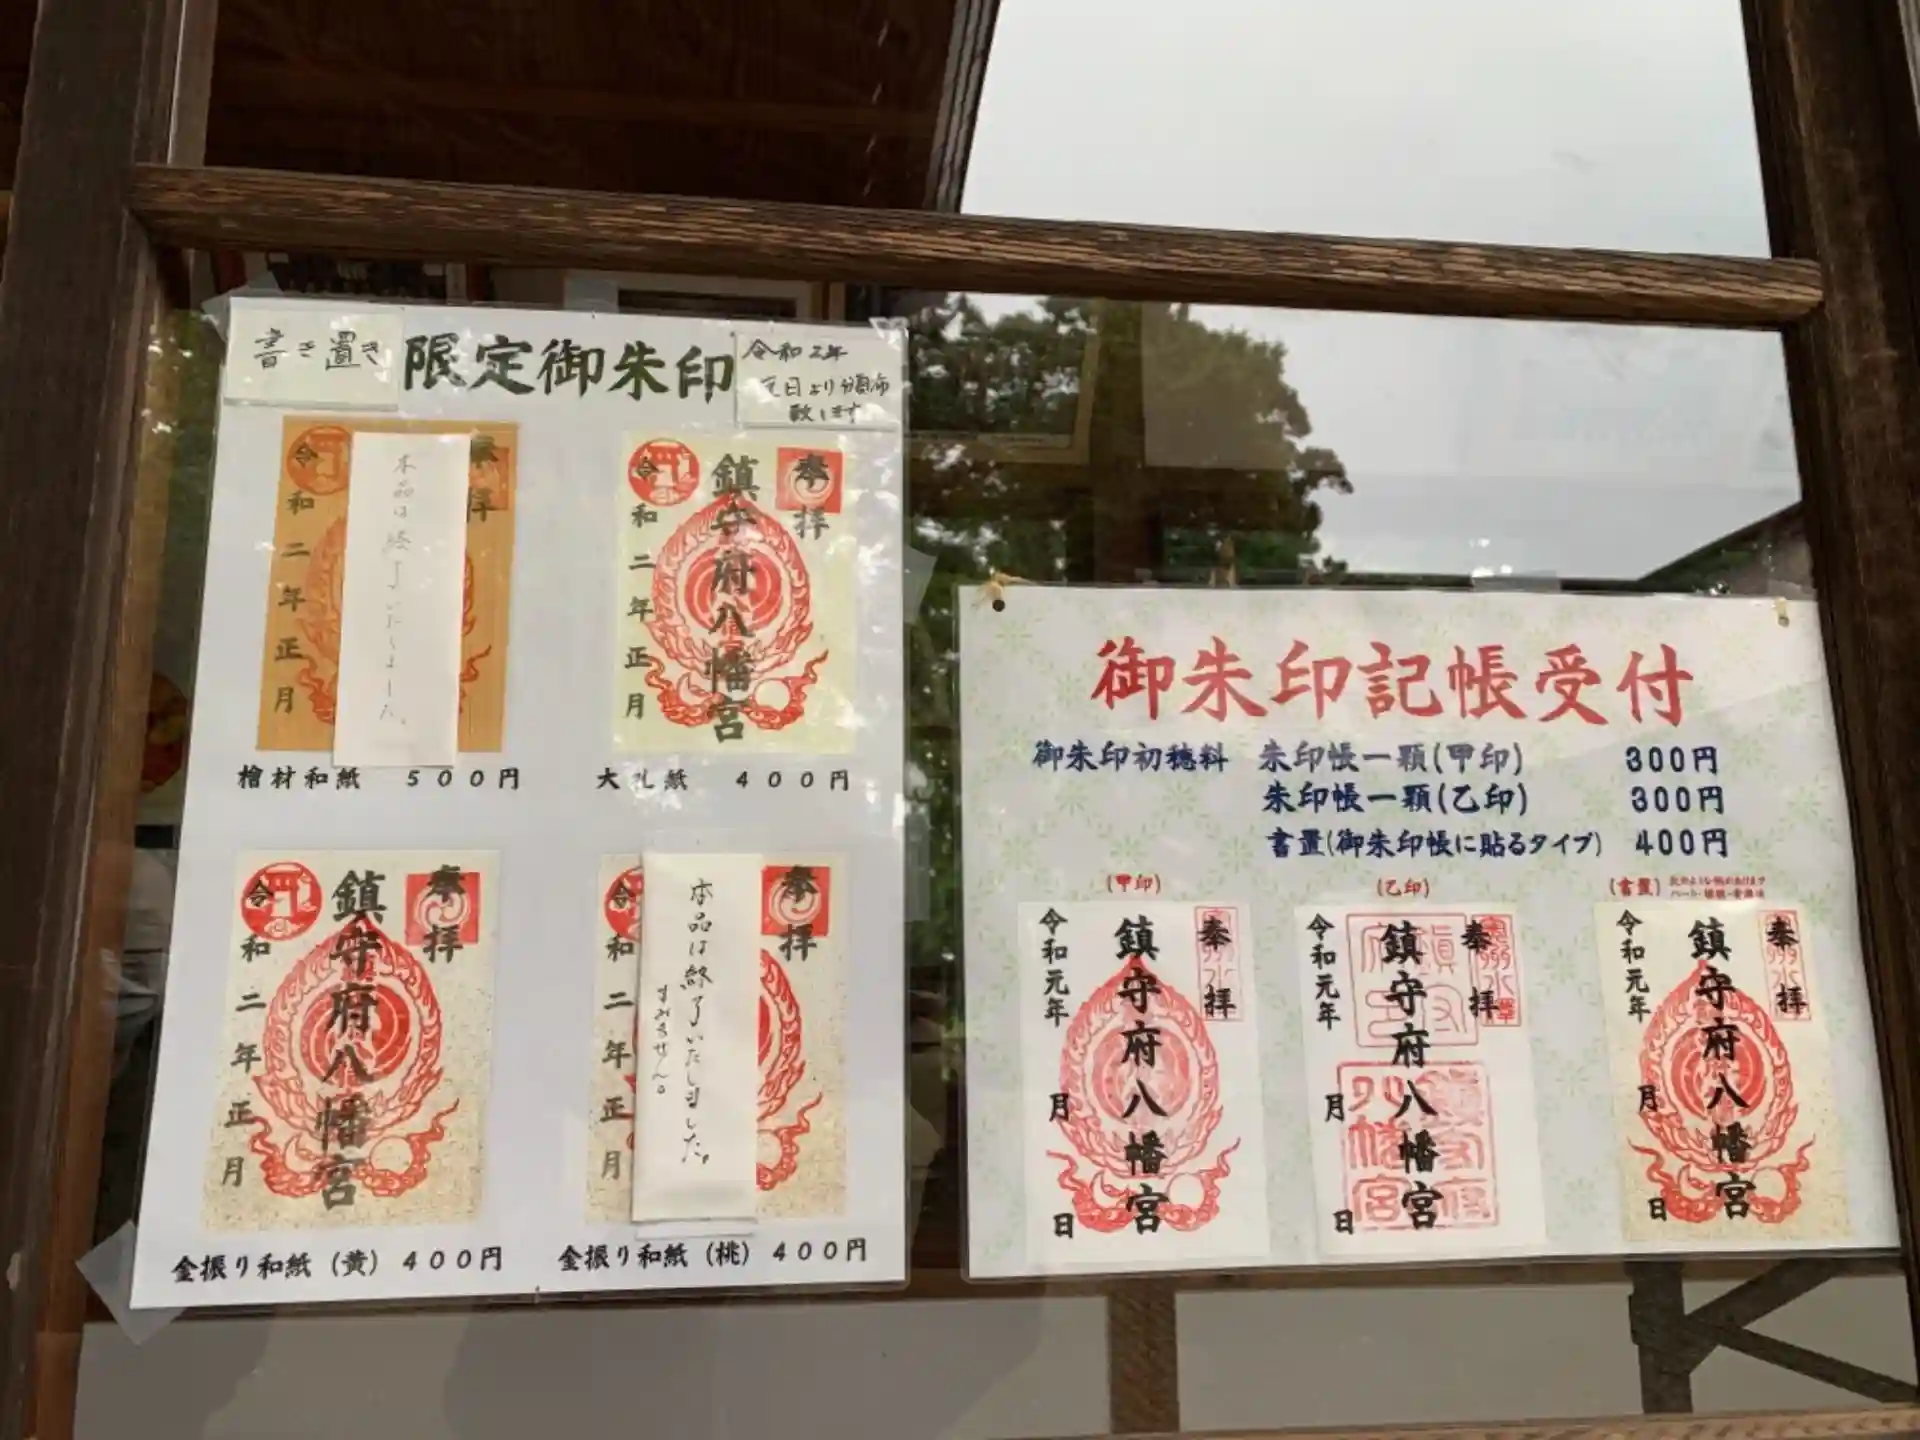 書き置き
限定御朱印
令和2年
元日より頒布
致します
奉拝
令和二年正月
本品は終了いたしました。
檜材和紙 500円
奉拝
鎮守府八幡宮
令和二年正月
大礼紙 400円
奉拝
鎮守府八幡宮
令和二年正月
金振り和紙(黄) 400円
奉拝
令和二年正月
本品は終了いたしました。
すみません。
金振り和紙(桃) 400円
御朱印記帳受付
御朱印初穂料 朱印帳一顆(甲印) 300円
朱印帳一顆(乙印) 300円
書置(御朱印帳に貼るタイプ) 400円
(甲印)
奉拝
鎮守府八幡宮
令和元年 月 日
(乙印)
奉拝
鎮守府八幡宮
令和元年 月 日
(書置)
奉拝
鎮守府八幡宮
令和元年 月 日